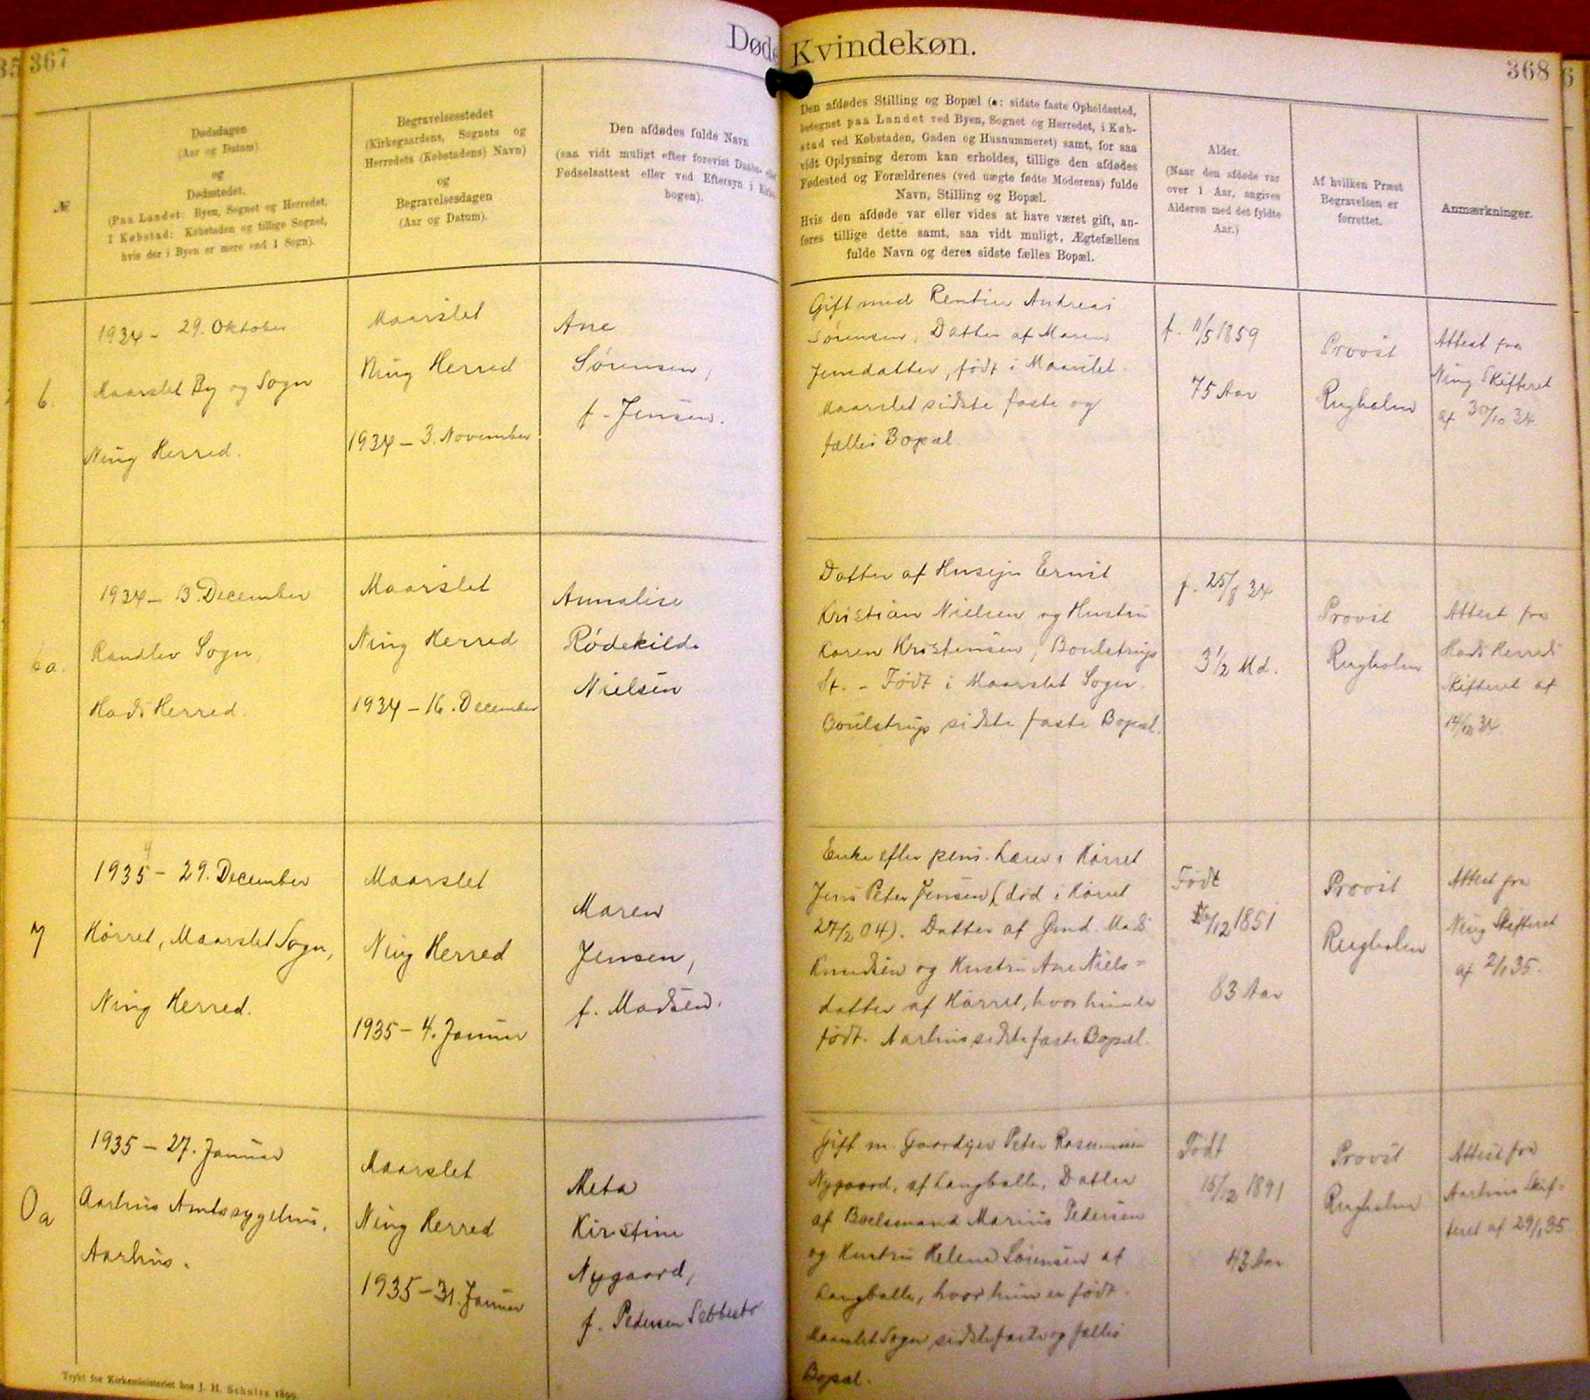 367
Døde
Kvindekøn.
368
№
Dødsdagen
(Aar og Datum)
og
Dødsstedet.
(Paa Landet: Byen, Sognet og Herredet,
I Købstad: Købstaden og tillige Sognet,
hvis der i Byen er mere end 1 Sogn).
Begravelsesstedet
(Kirkegaardens, Sognets og
Herredets (Købstadens) Navn)
og
Begravelsesdagen
(Aar og Datum).
Den afdødes fulde Navn
(saa vidt muligt efter forevist Daabs- eller
Fødselsattest eller ved Eftersyn i Kirke-
bogen).
Den afdødes Stilling og Bopæl (ɔ: sidste faste Opholdssted,
betegnet paa Landet ved Byen, Sognet og Herredet, i Køb-
stad ved Købstaden, Gaden og Husnummeret) samt, for saa
vidt Oplysning derom kan erholdes, tillige den afdødes
Fødested og Forældrenes (ved uægte fødte Moderens) fulde
Navn, Stilling og Bopæl.
Hvis den afdøde var eller vides at have været gift, an-
føres tillige dette samt, saa vidt muligt, Ægtefællens
fulde Navn og deres sidste fælles Bopæl.
Alder.
(Naar den afdøde var
over 1 Aar, angives
Alderen med det fyldte
Aar.)
Af hvilken Præst
Begravelsen er
forrettet.
Anmærkninger.
6.
1934 - 29. Oktober
Maarslet By og Sogn
Ning Herred.
Maarslet
Ning Herred
1934 - 3. November
Ane
Sørensen,
f. Jensen.
Gift med Rentier Andreas
Sørensen, Datter af Maren
Jensdatter, født i Maarslet.
Maarslet sidste faste og
fælles Bopæl.
f. 11/5 1859
75 Aar
Provst
Rugholm
Attest fra
Ning Skifteret
af 30/10 34
6a.
1934 - 13. December
Randlev Sogn,
Hads Herred.
Maarslet
Ning Herred
1934 - 16. December
Annalise
Rödekilde
Nielsen
Datter af Husejer Ernst
Kristian Nielsen og Hustru
Karen Kristensen, Boulstrup
St. - Født i Maarslet Sogn.
Boulstrup sidste faste Bopæl.
f. 25/8 34
3½ Md.
Provst
Rugholm
Attest fra
Hads Herreds
Skifteret af
14/12 34
7
4
1935 - 29. December
Hörret, Maarslet Sogn,
Ning Herred.
Maarslet
Ning Herred
1935 - 4. Januar
Maren
Jensen,
f. Madsen.
Enke efter pens. Lærer i Hörret
Jens Peter Jensen (död i Hörret
27/2 04). Datter af Gmd. Mads
Knudsen og Hustru Ane Niels=
datter af Hörret, hvor hun er
født. Aarhus sidste faste Bopæl.
Født
/12 1851
83 Aar
Provst
Rugholm
Attest fra
Ning Skifteret
af 2/1 35.
0a
1935 - 27. Januar
Aarhus Amtssygehus,
Aarhus.
Maarslet
Ning Herred
1935 - 31. Januar
Meta
Kirstine
Nygaard,
f. Pedersen
Gift m. Gaardejer Peter Rasmussen
Nygaard, af Langballe. Datter
af Boelsmand Marius Pedersen
og Hustru Helene Sörensen af
Langballe, hvor hun er født.
Maarslet Sogn sidste faste og fælles
Bopæl.
Født
15/12 1891
43 Aar
Provst
Rugholm
Attest fra
Aarhus Skif-
teret af 29/1 35
Trykt for Kirkeministeriet hos J. H. Schultz 1899.